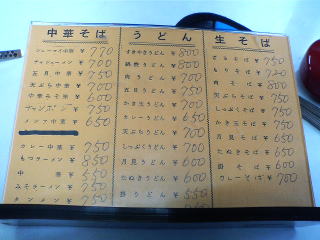 中華そば
シューマイ中華 ¥ 770
チャシューメン ¥ 700
五目中華 ¥ 750
天ぷら中華 ¥ 700
中華みそ ¥ 600
チャンポン ¥ 750
メンマ中華 ¥ 650
カレー中華 ¥ 750
もつラーメン ¥ 850
中華 ¥ 550
みそラーメン ¥ 750
タンメン ¥ 750
うどん
すきやきうどん ¥ 800
鍋焼うどん ¥ 800
肉うどん ¥ 700
五目うどん ¥ 750
かき玉うどん ¥ 700
カレーうどん ¥ 650
天ぷらうどん ¥ 700
しっぽくうどん ¥ 700
月見うどん ¥ 600
たぬきうどん ¥ 600
うどん ¥ 550
生そば
ざるそば ¥ 750
もりそば ¥ 720
肉そば ¥ 800
天ぷらそば ¥ 750
しっぽくそば ¥ 750
かき玉そば ¥ 750
月見そば ¥ 650
たぬきそば ¥ 650
そば ¥ 600
カレーそば ¥ 700